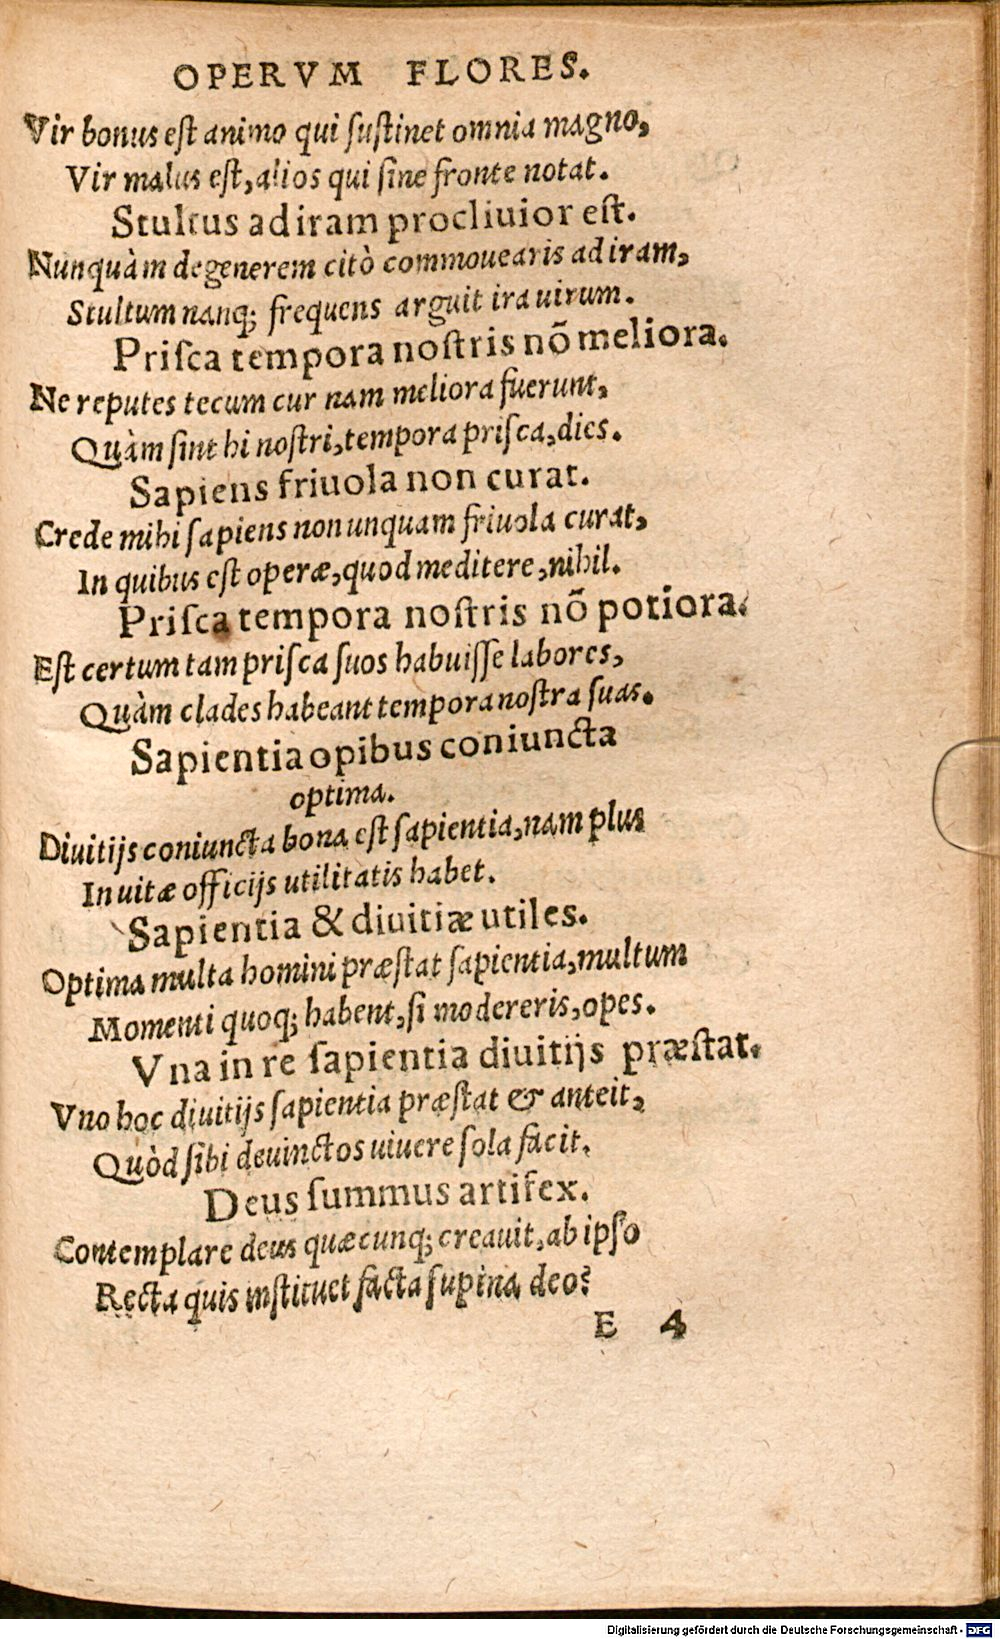 OPERVM FLORES.
Vir bonus est animo qui sustinet omnia magno,
Vir malus est, alios qui sine fronte notat.
Stultus ad iram procliuior est.
Nunquàm degenerem citò commouearis ad iram,
Stultum nanq; frequens arguit ira uirum.
Prisca tempora nostris nõ meliora.
Ne reputes tecum cur nam meliora fuerunt,
Quàm sint hi nostri, tempora prisca, dies.
Sapiens friuola non curat.
Crede mihi sapiens non unquam friuola curat,
In quibus est operæ, quod meditere, nihil.
Prisca tempora nostris nõ potiora.
Est certum tam prisca suos habuisse labores,
Quàm clades habeant tempora nostra suas.
Sapientia opibus coniuncta
optima.
Diuitijs coniuncta bona est sapientia, nam plus
In uitæ officijs utilitatis habet.
Sapientia & diuitiæ utiles.
Optima multa homini præstat sapientia, multum
Momenti quoq; habent, si modereris, opes.
Vna in re sapientia diuitijs præstat.
Vno hoc diuitijs sapientia præstat & anteit,
Quòd sibi deuinctos uiuere sola facit.
Deus summus artifex.
Contemplare deus quæcunq; creauit, ab ipso
Recta quis instituet facta supina deo?
E 4
Digitalisierung gefördert durch die Deutsche Forschungsgemeinschaft - DFG